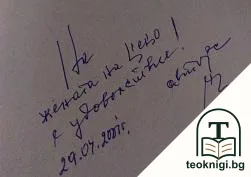 На
жената на Цено
с удоволствие!
автора
29.04.2007г.
T
teoknigi.bg